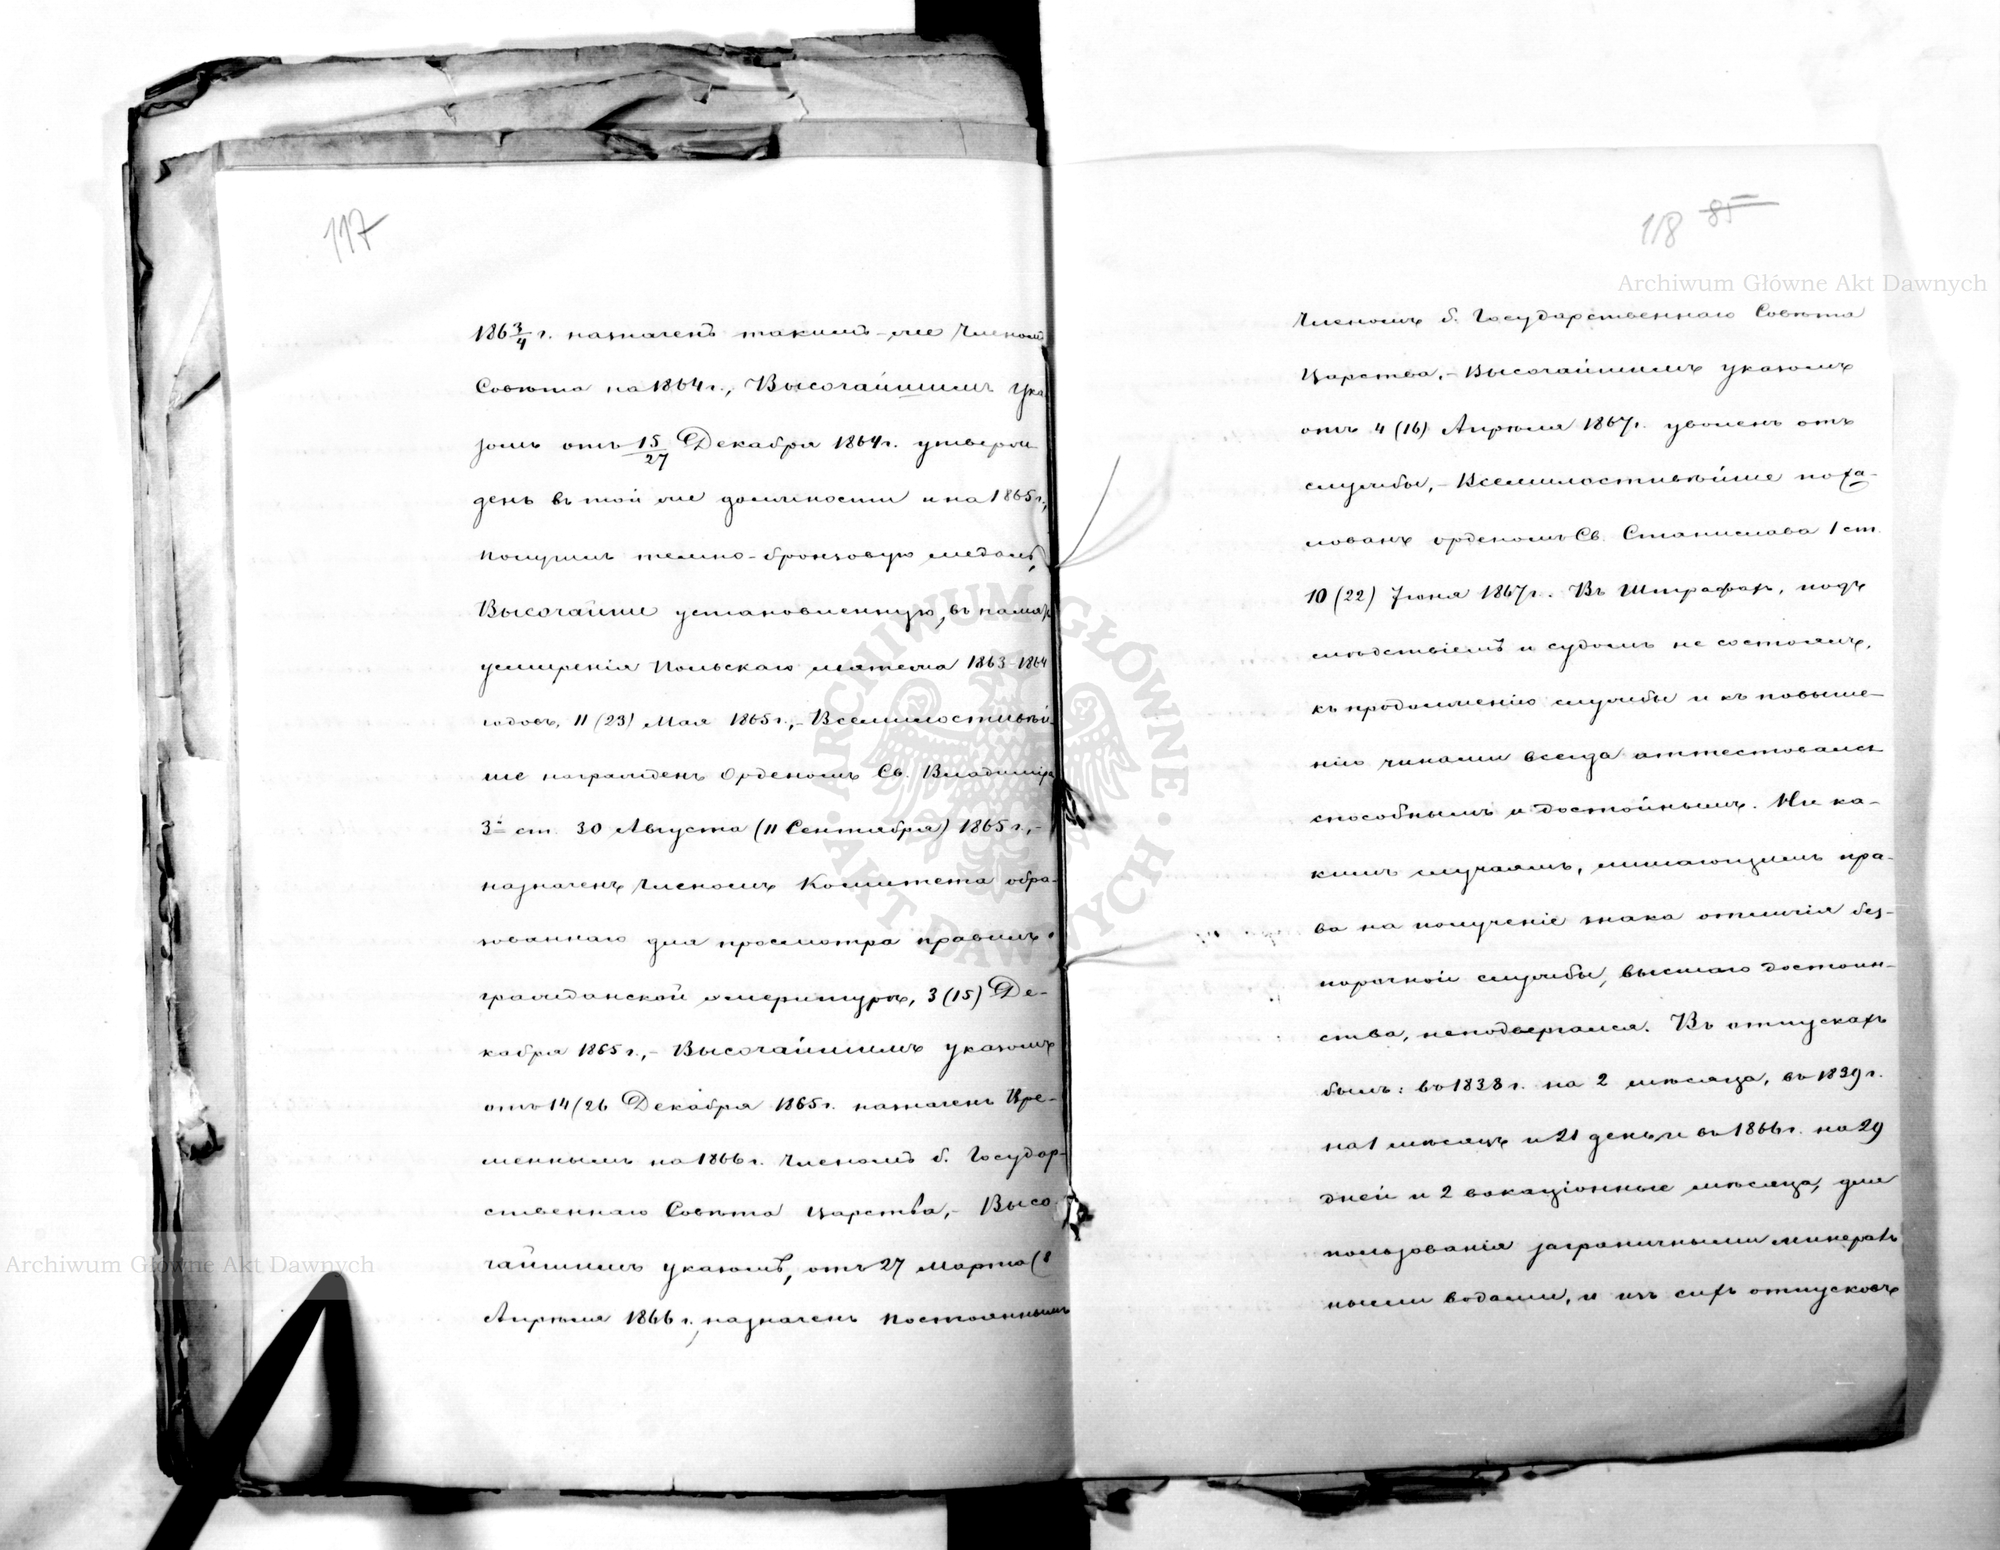 117
1863/4 г. назначенъ такимъ-же Членомъ
Совѣта на 1864 г., Высочайшимъ Ука-
зомъ отъ 15/27 Декабря 1864 г. утверж-
денъ въ той же должности и на 1865 г.,
получилъ темно-бронзовую медаль,
Высочайше установленную, въ память
усмиренія Польскаго мятежа 1863-1864
годовъ, 11 (23) Мая 1865 г.,- Всемилостивѣй-
ше награжденъ Орденомъ Св. Владиміра
3й ст. 30 Августа (11 Сентября) 1865 г.,-
назначенъ Членомъ Комитета обра-
зованнаго для просмотра правилъ о
гражданской эмеритурѣ, 3 (15) Де-
кабря 1865 г.,- Высочайшимъ указомъ
отъ 14/26 Декабря 1865 г. назначенъ Вре-
меннымъ на 1866 г. Членомъ б. Государ-
ственнаго Совѣта Царства,- Высо-
чайшимъ указомъ, отъ 27 Марта (8
Апрѣля 1866 г., назначенъ постояннымъ
118 85
Archiwum Główne Akt Dawnych
Членомъ б. Государственнаго Совѣта
Царства,- Высочайшимъ указомъ
отъ 4 (16) Апрѣля 1867 г. уволенъ отъ
службы,- Всемилостивѣйше пожа-
лованъ орденомъ Св. Станислава 1 ст.
10 (22) Іюня 1867 г. Въ штрафахъ, подъ
слѣдствіемъ и судомъ не состоялъ,
къ продолженію службы и къ повыше-
нію чинами всегда аттестовался
способнымъ и достойнымъ. Ни ка-
кимъ случаямъ, лишающимъ пра-
ва на полученіе знака отличія без-
порочной службы, высшаго достоин-
ства, неподвергался. Въ отпускахъ
былъ: въ 1838 г. на 2 мѣсяца, въ 1839 г.
на 1 мѣсяцъ и 21 день и въ 1866 г. на 29
дней и 2 вакаціонные мѣсяца, для
пользованія заграничными минераль-
ными водами, и изъ сихъ отпусковъ
ARCHIWUM GŁÓWNE
AKT DAWNYCH
Archiwum Główne Akt Dawnych